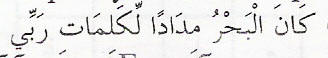 كَانَ الْبَحْرُ مِدَادًا لِّكَلِمَاتِ رَبِّي